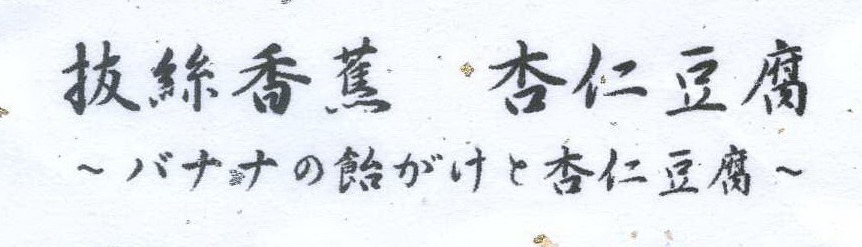 抜絲香蕉 杏仁豆腐
~バナナの飴がけと杏仁豆腐~